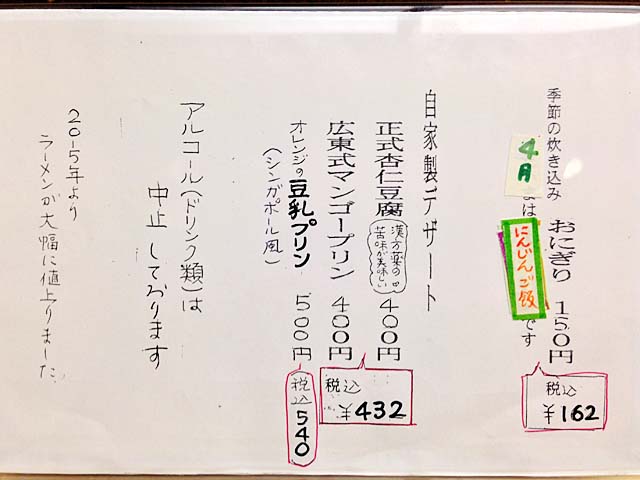 季節の炊き込み
おにぎり 150円
税込
¥162
4月
は
にんじんご飯
です
自家製デザート
正式杏仁豆腐
漢方薬の
苦味が美味しい
400円
広東式マンゴープリン 400円
税込
¥432
オレンジの豆乳プリン 500円
(シンガポール風)
税込
540
アルコール(ドリンク類)は
中止しております
2015年より
ラーメンが大幅に値上りました